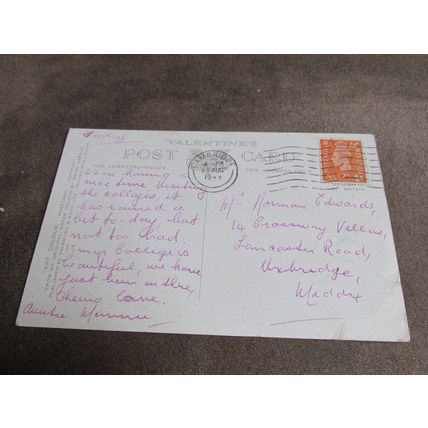 Tuesday
VALENTINE'S
POST CARD
FOR CORRESPONDENCE
CAMBRIDGE
PM
AUG
19
Been having a
nice time visiting
the colleges, it
has rained a
bit to-day, but
not too bad.
Kings College is
beautiful, we have
just been in there,
Cheerio love.
Auntie Minnie
Mr Norman Edwards,
14 Crossway Villas,
Lancaster Road,
Uxbridge,
Middx